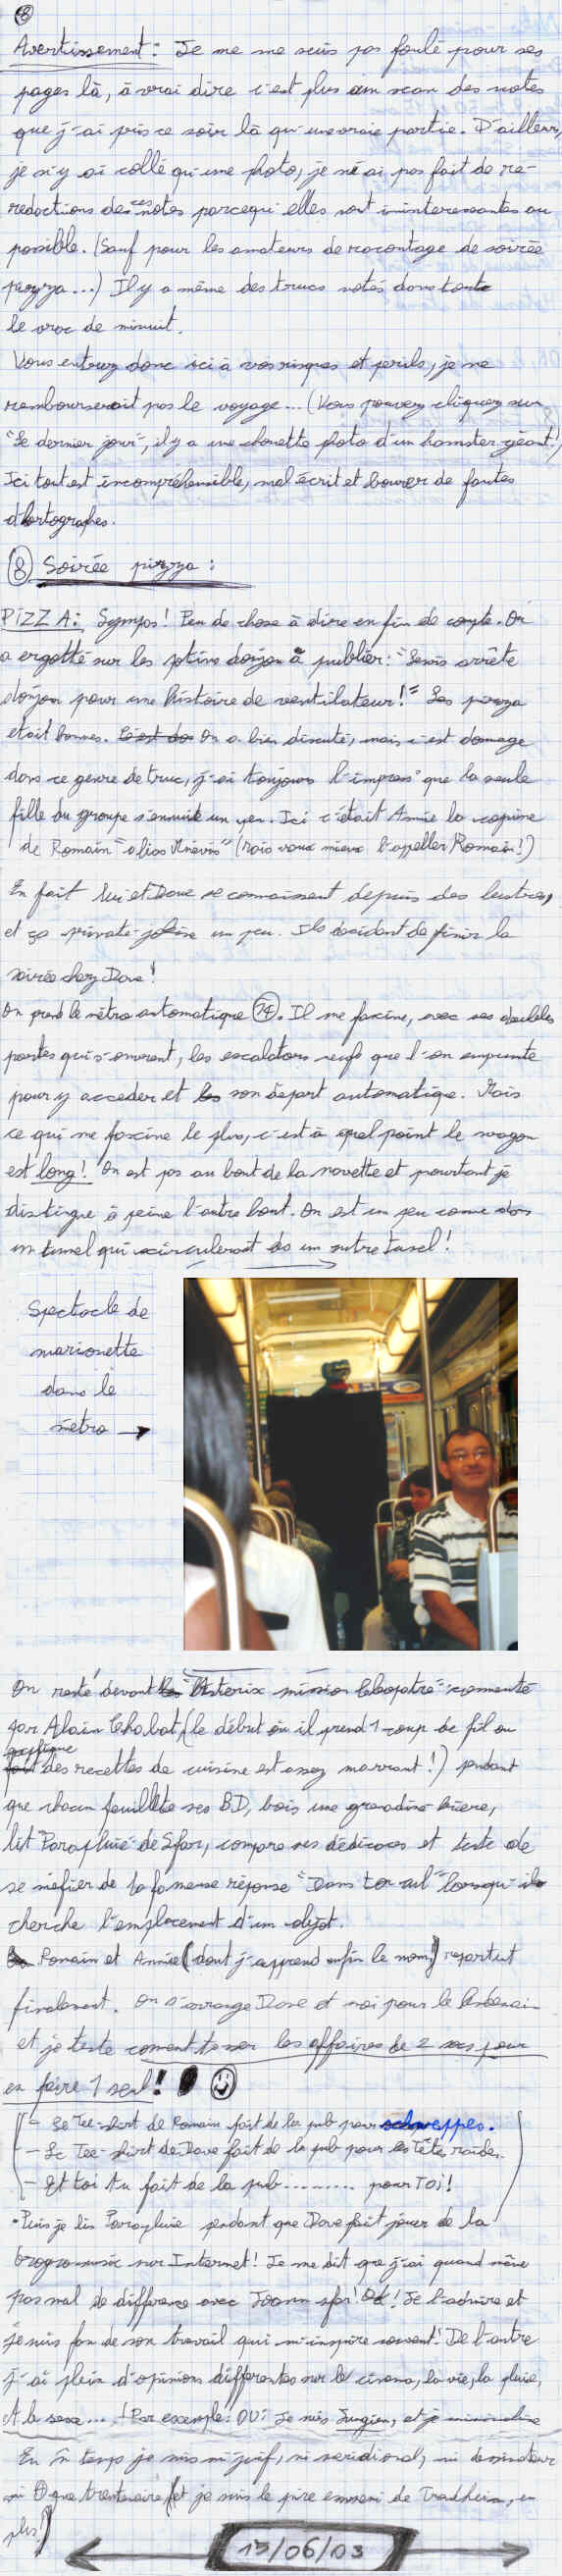 8
Avertissement : Je me me suis pas foulé pour ses
pages là, à vrai dire c'est plus un scan des notes
que j'ai pris ce soir là qu'une vraie partie. D'ailleurs,
je n'y ai collé qu'une photo, je n'ai pas fait de re-
rédactions de ces notes parcequ'elles sont ininteressantes au
possible. (Sauf pour les amateurs de racontage de soirée
pizza...) Il y a même des trucs notés dans tout
le vrac de minuit.
Vous entrez donc ici à vos risques et perils, je ne
rembourserait pas le voyage... (Vous pouvez cliquez sur
"Le dernier jour", il y a une chouette photo d'un hamster géant)
Ici tout est incompréhensible, mal écrit et bourrer de fautes
d'hortographes.
8 Soirée pizza :
PIZZA : Sympas ! Peu de chose à dire en fin de compte. On
a ergotté sur les potins donjon à publier : "Lewis arrête
donjon pour une histoire de ventilateur !" Les pizza
était bonnes. On a bien discuté, mais c'est domage
dans ce genre de truc, j'ai toujours l'impress° que la seule
fille du groupe s'ennuie un peu. Ici c'était Annie la copine
de Romain "alias" (mais vaux mieux l'appeller Romain !)
En fait lui et Dave se connaissent depuis des lustres,
et ça private-joke un peu. Ils décident de finir la
soirée chez Dave !
On prend le métro automatique 14. Il me fascine, avec ses doubles
portes qui s'ouvrent, les escalators neufs que l'on emprunte
pour y acceder et son départ automatique. Mais
ce qui me fascine le plus, c'est à quel point le wagon
est long ! On est pas au bout de la navette et pourtant je
distingue à peine l'autre bout. On est un peu comme dans
un tunnel qui circulerait ds un autre tunel !
Spectacle de
marionette
dans le
métro →
On reste devant "Astérix mission Cléopatre" commenté
par Alain Chabat, (le début où il prend 1 coup de fil ou
explique des recettes de cuisine est assez marrant !) pendant
que chacun feuillete ses BD, bois une grenadine bière,
lit "Parapluie" de Sfar, compare ses dédicaces et tente de
se méfier de la fameuse réponse "Dans ton cul" lorsqu'il
cherche l'emplacement d'un objet.
Romain et Annie (dont j'apprend enfin le nom) repartent
finalement. On s'arrange Dave et moi pour le
et je teste coment tasser les affaires de 2 sacs pour
en faire 1 seul !
- Le Tee-shirt de Romain fait de la pub pour schweppes.
- Le Tee-shirt de Dave fait de la pub pour les Têtes raides.
- Et toi tu fait de la pub......... pour TOI !
• Puis je lis Parapluie pendant que Dave fait jouer de la
sur Internet ! Je me dit que j'ai quand même
pas mal de différence avec Joann sfar ! Je l'admire et
je suis fan de son travail qui m'inspire souvent ! De l'autre
j'ai plein d'opinions différentes sur le cinema, la vie, la pluie,
et le sexe... ! Par exemple : OUI je suis Jungien, et je
En m̂ temps je suis ni juif, ni méridional, ni dessinateur
ni que trentenaire (et je suis le pire ennemi de, en
plus !)
15/06/03